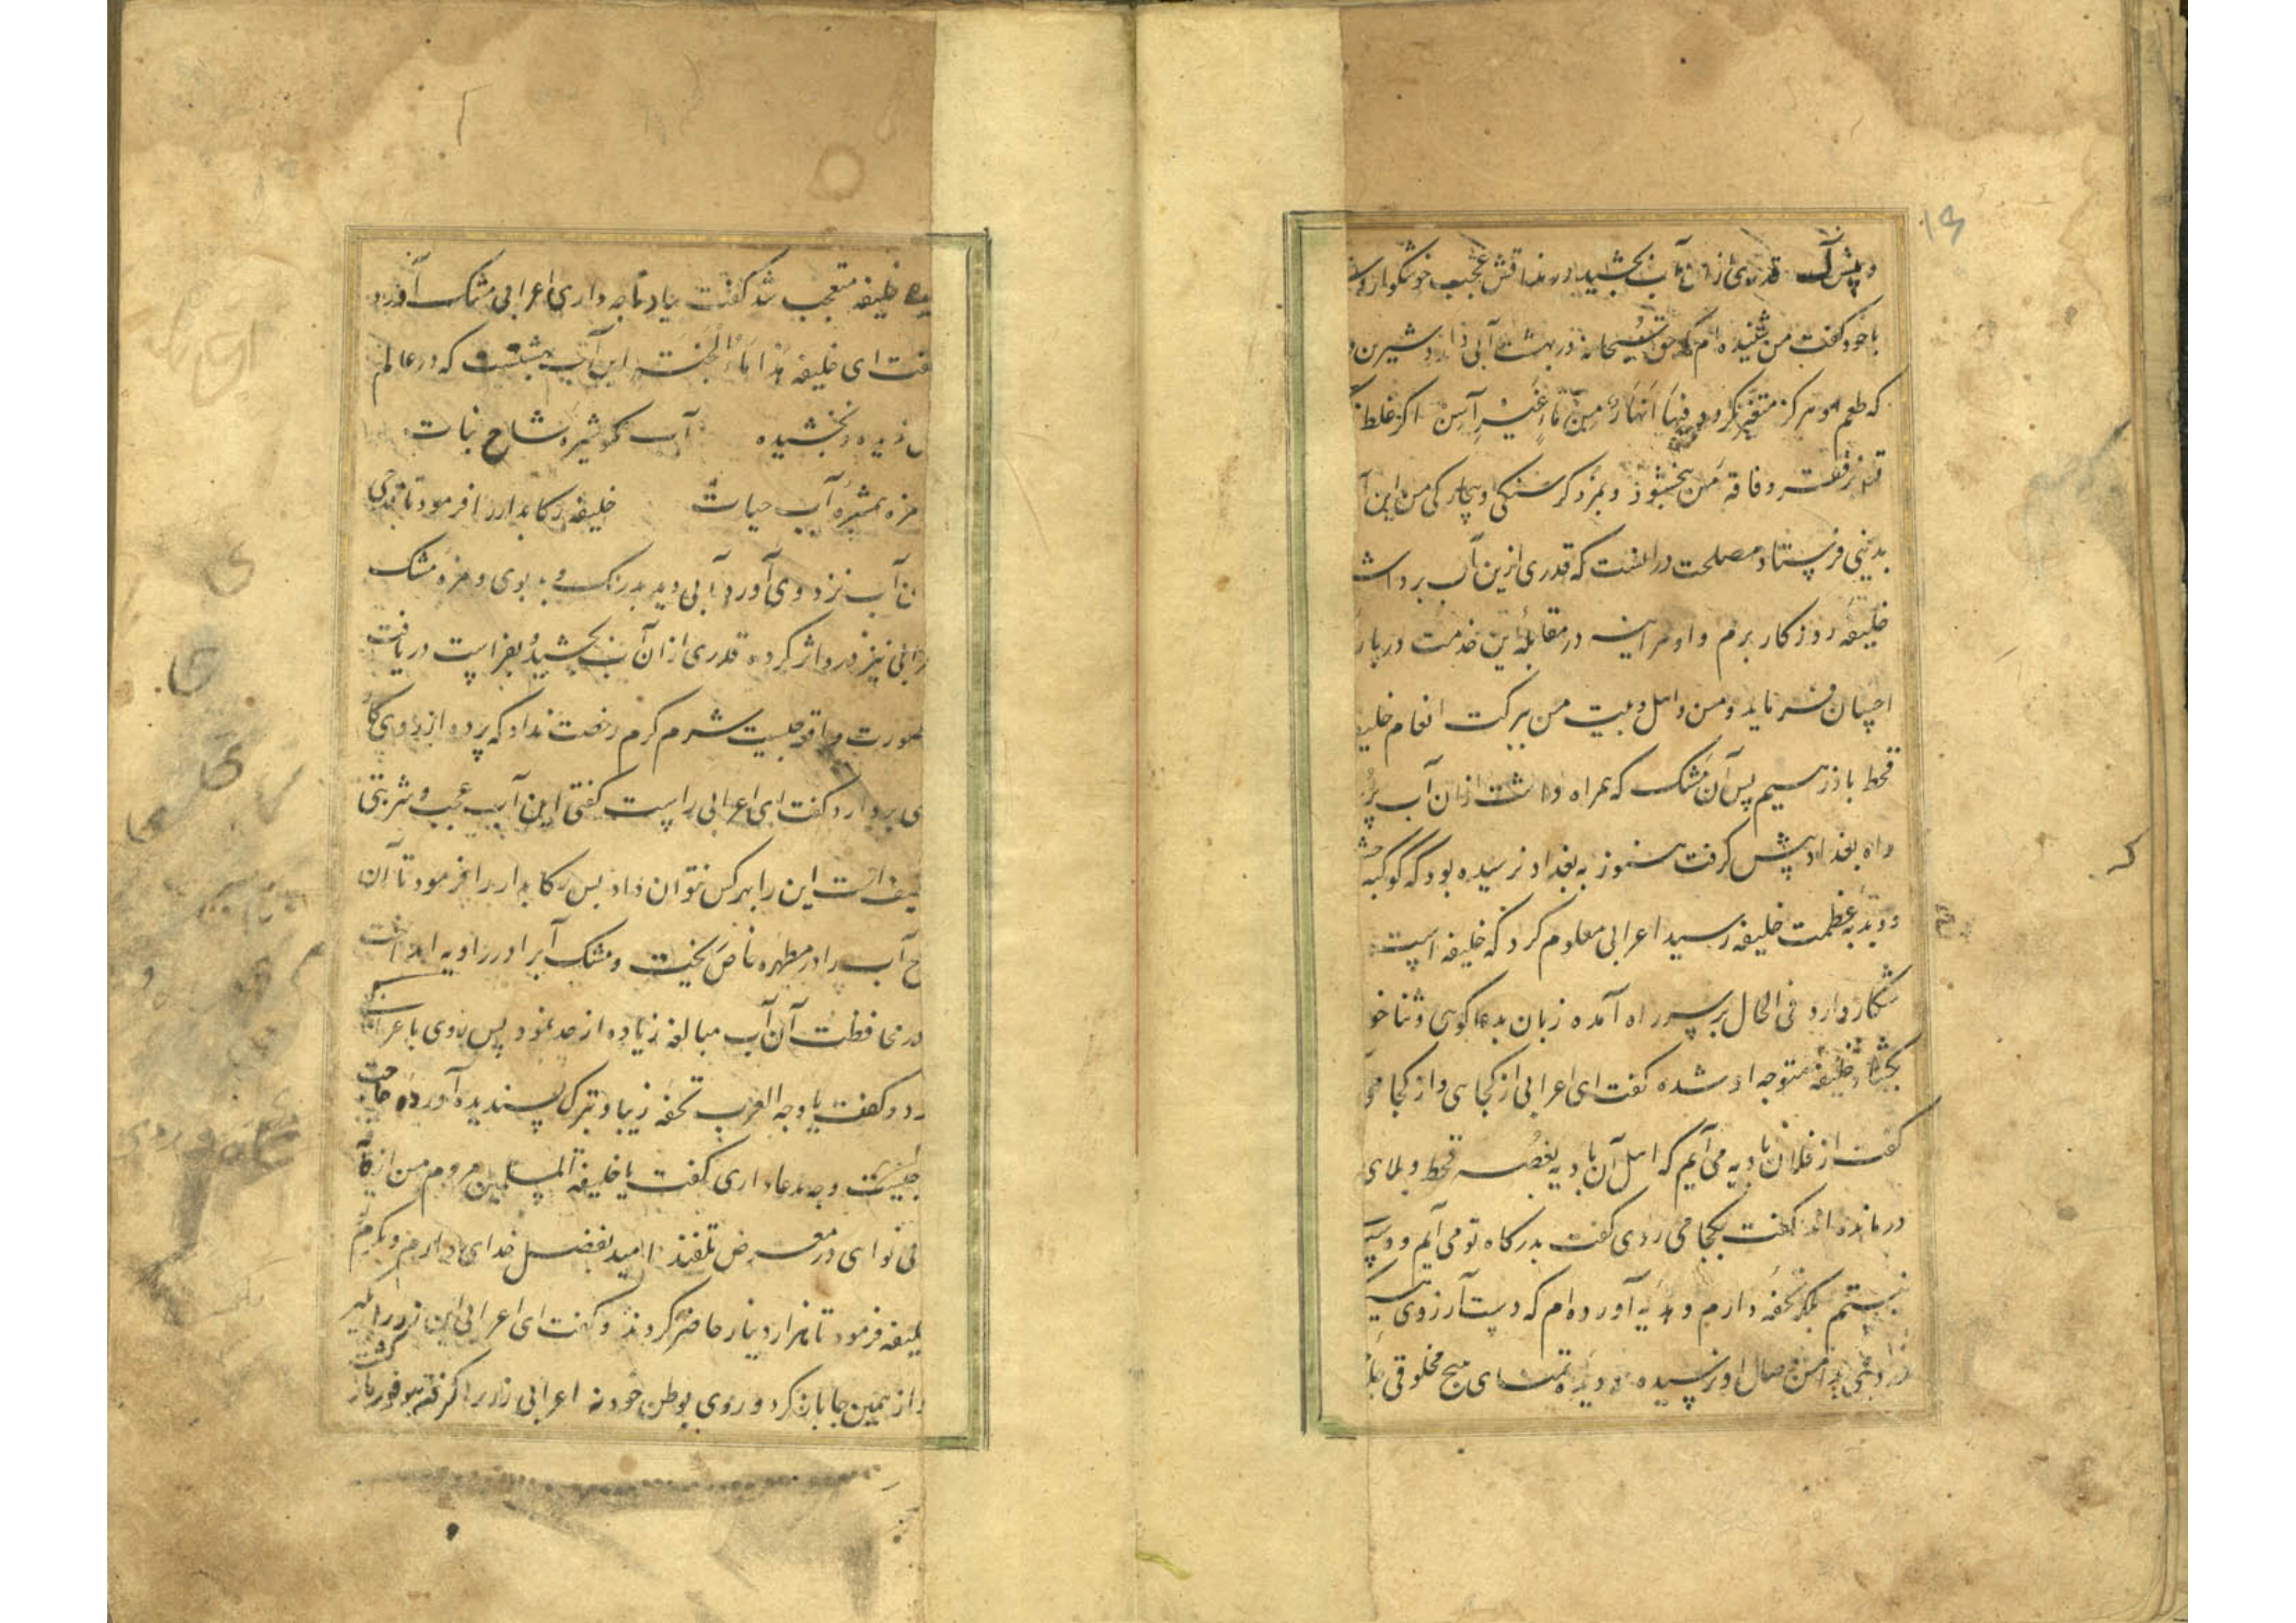 و پیش آمد قدری از آن آب بچشید در مذاقش عجب خوشگوار و
با خود گفت من شنیده ام که حق سبحانه در بهشت آبی دارد شیرین و
که طعم او هرگز متغیر نگردد فیها انهار من ماء غیر آسن اگر غلط
فقر و فاقه من بخشود و بمزد گرسنگی و بیچارگی من این آ
بدینی فرستاد مصلحت در آنست که قدری ازین آب برداشت
خلیفه روزگار برم و او هر آینه در مقابله این خدمت در بار
احسان فرماید و من و اهل و بیت من ببرکت انعام خلیفه
قحط باز رهیم پس آن مشک که همراه داشت از آن آب پر
راه بغداد پیش گرفت هنوز به بغداد نرسیده بود که کوکبه
و دبدبه عظمت خلیفه رسید اعرابی معلوم کرد که خلیفه است
شکار دارد فی الحال بر سر راه آمده زبان بدعا گویی و ثنا خو
بگشاد خلیفه متوجه او شده گفت ای اعرابی از کجایی و از کجا می
گفت از فلان بادیه می آیم که اهل آن بادیه بغصه قحط و بلای
درمانده اند گفت بکجا می روی گفت بدرگاه تو می آیم و دست
نیستم بلکه تحفه دارم و هدیه آورده ام که دست آرزوی هیچ
بدامن وصال او نرسیده و دیده تمنای هیچ مخلوقی
خلیفه متعجب شد گفت بیار تا چه داری اعرابی مشک آورد
گفت ای خلیفه هذا ماء الجنة این آب بهشتست که در عالم
کس ندیده و نچشیده آب کو شیره شاخ نبات
مزه بمثره آب حیات خلیفه رکابدار را فرمود تا قدحی
از آن آب نزد وی آورد آبی دید بد رنگ و بد بوی و مزه مشک
اعرابی نیز درو اثر کرده قدری از آن آب بچشید و بفراست دریافت
صورت واقعه چیست شرم کرم رخصت نداد که پرده از روی کا
وی بردارد گفت ای اعرابی راست گفتی این آب عجب و شربتی
لطیف است این را بهر کس نتوان داد پس رکابدار را فرمود تا آن
قدح آب را در مطهره خاص ریخت و مشک آب را در زاویه انداخت
در محافظت آن آب مبالغه زیاده از حد نمود پس روی باعرابی
کرد و گفت یا وجه العرب تحفه زیبا و تبرک پسندیده آورده حاجت
چیست و چه مدعا داری گفت یا خلیفة المسلمین مردم من از
بی نوایی در معرض تلفند امید بفضل خدای دارم و بکرم
خلیفه فرمود تا هزار دینار حاضر کردند و گفت ای اعرابی این زر را بگیر
و از همین جا باز گرد و روی بوطن خود نه اعرابی زر را گرفته بر فور باز گشت